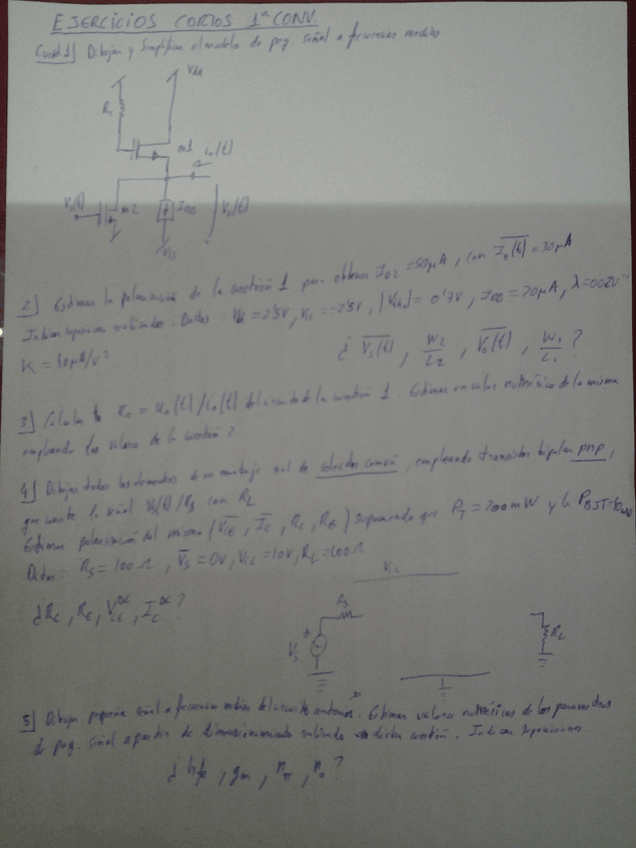 EJERCICIOS CORTOS 1ª CONV.
Cuest 1] Dibujar y Simplificar el modelo de peq. señal a frecuencias medias
Vdd
R1
M1
io(t)
Vs(t)
M2
IDD
Vo(t)
Vss
2] Estimar la polarización de la cuestión 1 para obtener ID2 = 50µA, con Io(t) = 30µA
Indicar suposiciones realizadas. Datos: = 2'5V, Vss = -2'5V, |Vth| = 0'7V, IDD = 70µA, λ=0'02V⁻¹
K = 90µA/V²
¿ Vs(t), W2/L2, Vo(t), W1/L1 ?
3] Calcular Ro = vo(t)/io(t) del circuito de la cuestión 1. Estimar un valor numérico de la misma
empleando los valores de la cuestión 2.
4] Dibujar todos los elementos de un montaje real de colector común, empleando transistor bipolar pnp,
que conecte la señal Vs(t)/Rs con RL
Estimar polarización del mismo (VCE, IC, RC, RE) suponiendo que PT = 200mW y la PBJT=
Datos: RS = 100Ω, VS = 0V, VCC = 10V, RL = 100Ω
VCC
¿RC, RE, VCE DC, IC DC?
RS
VS
RL
5] Dibujar pequeña señal a frecuencias medias del circuito anterior. Estimar valores numéricos de los parámetros
de peq. señal a partir de dimensionamiento realizado en dicha cuestión. Indicar suposiciones.
¿ hfe, gm, rπ, ro ?